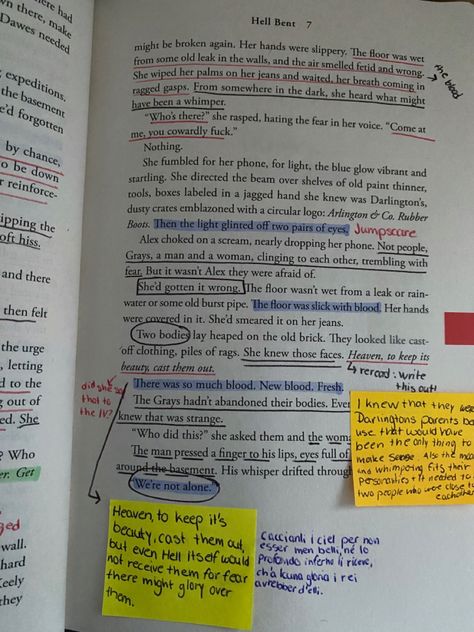 had
wn there, make
Dawes needed
expeditions.
the basement
e'd forgotten
by chance,
to be down
r reinforce-
ipping the
oft hiss.
and there
then felt
the urge
, letting
d to the
g out of
ed. She
? Who
der. Get
wall.
hard
Keely
they
Hell Bent 7
might be broken again. Her hands were slippery. The floor was wet
from some old leak in the walls, and the air smelled fetid and wrong.
She wiped her palms on her jeans and waited, her breath coming in
ragged gasps. From somewhere in the dark, she heard what might
have been a whimper.
the blood
"Who's there?" she rasped, hating the fear in her voice. "Come at
me, you cowardly fuck."
Nothing.
She fumbled for her phone, for light, the blue glow vibrant and
startling. She directed the beam over shelves of old paint thinner,
tools, boxes labeled in a jagged hand she knew was Darlington's,
dusty crates emblazoned with a circular logo: Arlington & Co. Rubber
Boots. Then the light glinted off two pairs of eyes.
Jumpscare
Alex choked on a scream, nearly dropping her phone. Not people,
Grays, a man and a woman, clinging to each other, trembling with
fear. But it wasn't Alex they were afraid of.
She'd gotten it wrong. The floor wasn't wet from a leak or rain-
water or some old burst pipe. The floor was slick with blood. Her hands
were covered in it. She'd smeared it on her jeans.
Two bodies lay heaped on the old brick. They looked like cast-
off clothing, piles of rags. She knew those faces. Heaven, to keep its
beauty, cast them out.
reread: write
this out!
There was so much blood. New blood. Fresh.
did she
that to
The Grays hadn't abandoned their bodies. Even
knew that was strange.
"Who did this?" she asked them and the wom
The man pressed a finger to his lips, eyes full of
around the basement. His whisper drifted through
"We're not alone."
I knew that they were
Darlingtons parents
use that would have
been the only thing to
make sense. Also the
and whimpering fits their
personalities + it needed to
two people who were close to
eachother
Heaven, to keep it's
beauty, cast them out,
but even Hell itself would
not receive them for fear
there might glory over
them.
Caccianli i ciel per non
esser men belli, né lo
profondo inferno li riceve,
ch'alcuna gloria i rei
avrebber d'elli.